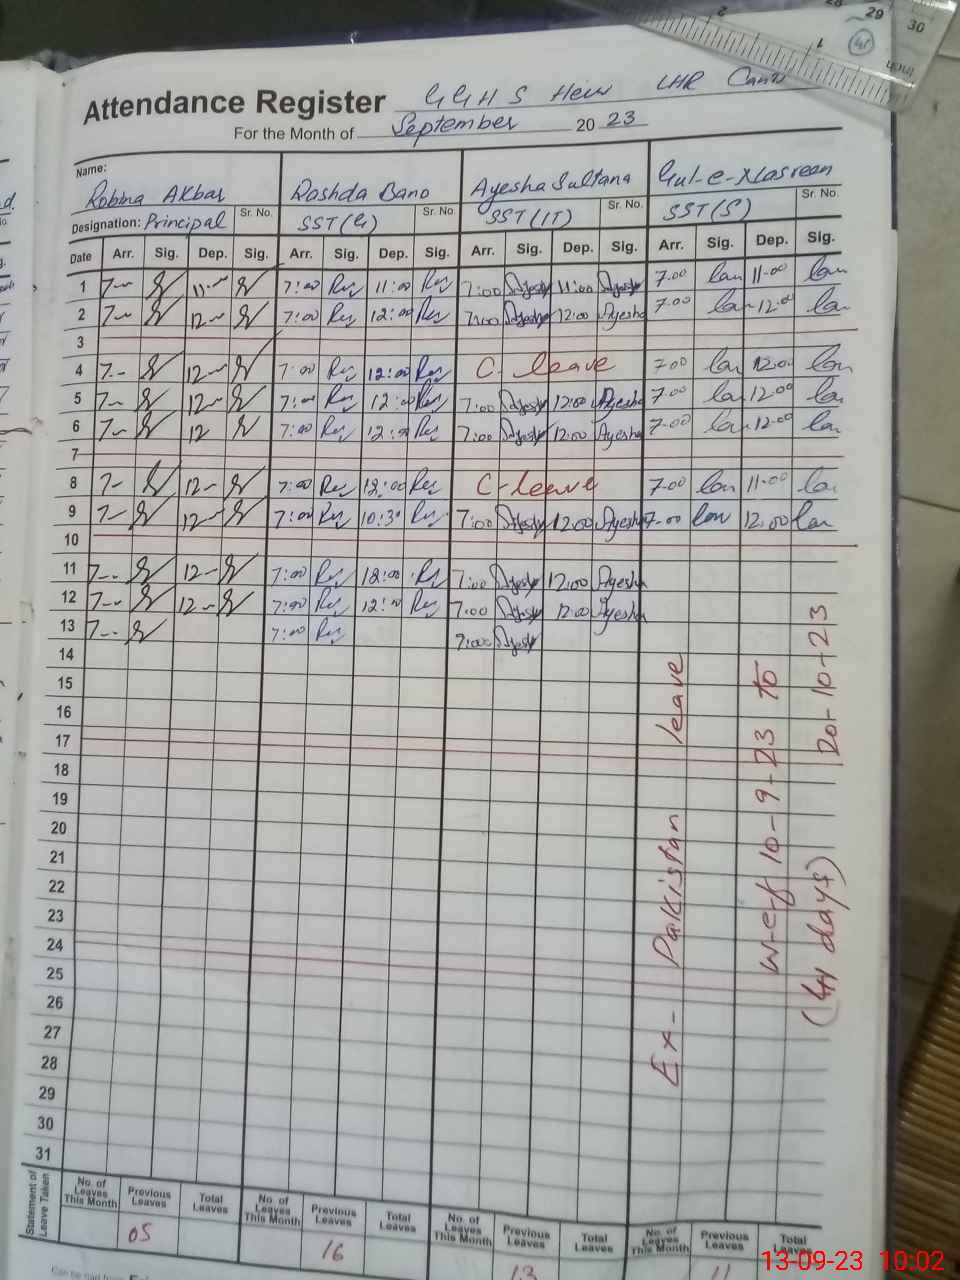 29
30
Attendance Register GGHS Heir LHR Cantt
For the Month of September 20 23
Name:
Robina Akbar Rashda Bano Ayesha Sultana Gul-e-Nasreen
Designation: Principal Sr. No. SST(G) Sr. No. SST(IT) Sr. No. SST(S) Sr. No.
Date Arr. Sig. Dep. Sig. Arr. Sig. Dep. Sig. Arr. Sig. Dep. Sig. Arr. Sig. Dep. Sig.
1 7-- 11-- 7:00 11:00 7:00 Ayesha 11:00 Ayesha 7.00 11.00
2 7-- 12-- 7:00 12:00 7:00 Ayesha 12:00 Ayesha 7.00 12.00
3
4 7-- 12-- 7:00 12:00 C- leave 7.00 12.00
5 7-- 12-- 7:00 12:00 7:00 Ayesha 12:00 Ayesha 7.00 12.00
6 7-- 12 7:00 12:00 7:00 Ayesha 12:00 Ayesha 7.00 12.00
7
8 7- 12-- 7:00 12:00 C-leave 7.00 11.00
9 7-- 12-- 7:00 10:30 7:00 Ayesha 12:00 Ayesha 7.00 12.00
10
11 7-- 12-- 7:00 12:00 7:00 Ayesha 12:00 Ayesha
12 7-- 12-- 7:00 12:00 7:00 Ayesha 12:00 Ayesha
13 7-- 7:00 7:00 Ayesha
14
15
16
17
18
19
20
21
22
23
24
25
26
27
28
29
30
31
Ex- Pakistan leave
w-e-f 10-9-23 to
20-10-23
(41 days)
Statement of Leave Taken
No. of Leaves This Month Previous Leaves Total Leaves No. of Leaves This Month Previous Leaves Total Leaves No. of Leaves This Month Previous Leaves Total Leaves No. of Leaves This Month Previous Leaves Total Leaves
05 16 13 11
13-09-23 10:02